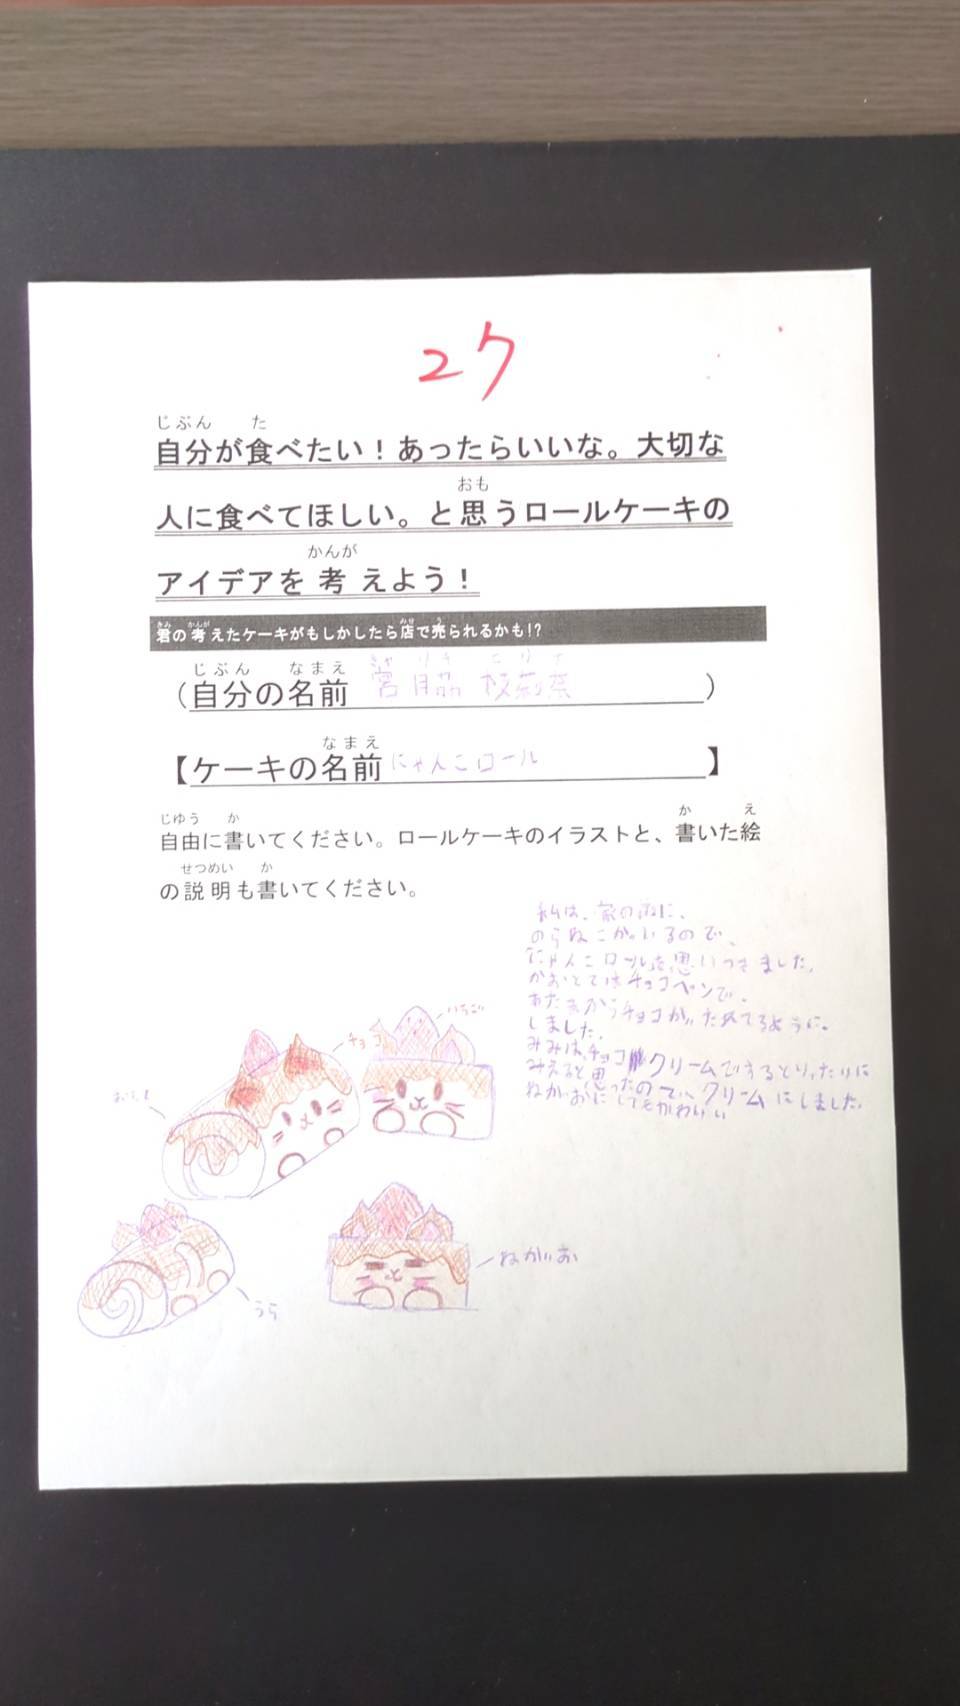 27
じぶん た
自分が食べたい！あったらいいな。大切な
おも
人に食べてほしい。と思うロールケーキの
かんが
アイデアを考えよう！
きみ かんが みせ う
君の考えたケーキがもしかしたら店で売られるかも!?
じぶん なまえ
(自分の名前 )
なまえ
【ケーキの名前 にゃんこロール 】
じゆう か か え
自由に書いてください。ロールケーキのイラストと、書いた絵
せつめい か
の説明も書いてください。
私は、家の前に、
のらねこが。いるので、
にゃんこロールを思いつきました。
かおとてはチョコペンで。
あたまからチョコが たれてるように。
しました。
みみは、チョコクリームで
みえると思ったので、クリームにしました。
ねがおにしてもかわいい
いちご
チョコ
うら
ねがお